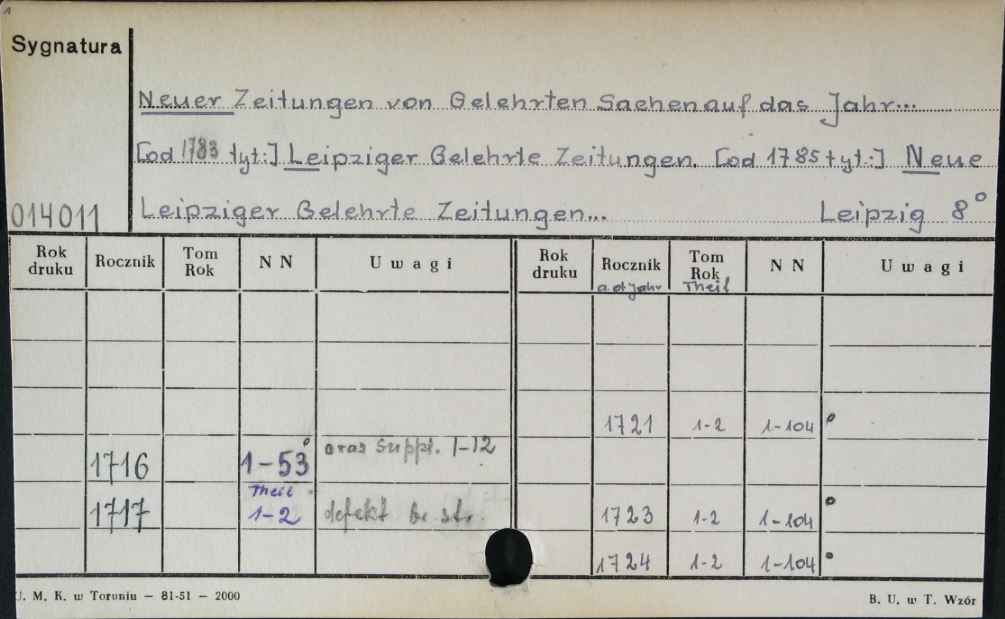 Sygnatura
Neuer Zeitungen von Gelehrten Sachen auf das Jahr...
[od 1783 tyt:] Leipziger Gelehrte Zeitungen. [od 1785 tyt:] Neue
014011 Leipziger Gelehrte Zeitungen... Leipzig 8°
Rok druku Rocznik Tom Rok NN Uwagi Rok druku Rocznik Tom Rok NN Uwagi
Theil
1721 1-2 1-104°
1716 1-53° oraz Suppl. 1-12
Theil
1717 1-2 defekt 1723 1-2 1-104°
1724 1-2 1-104°
U. M. K. w Toruniu — 81-51 — 2000 B. U. w T. Wzór